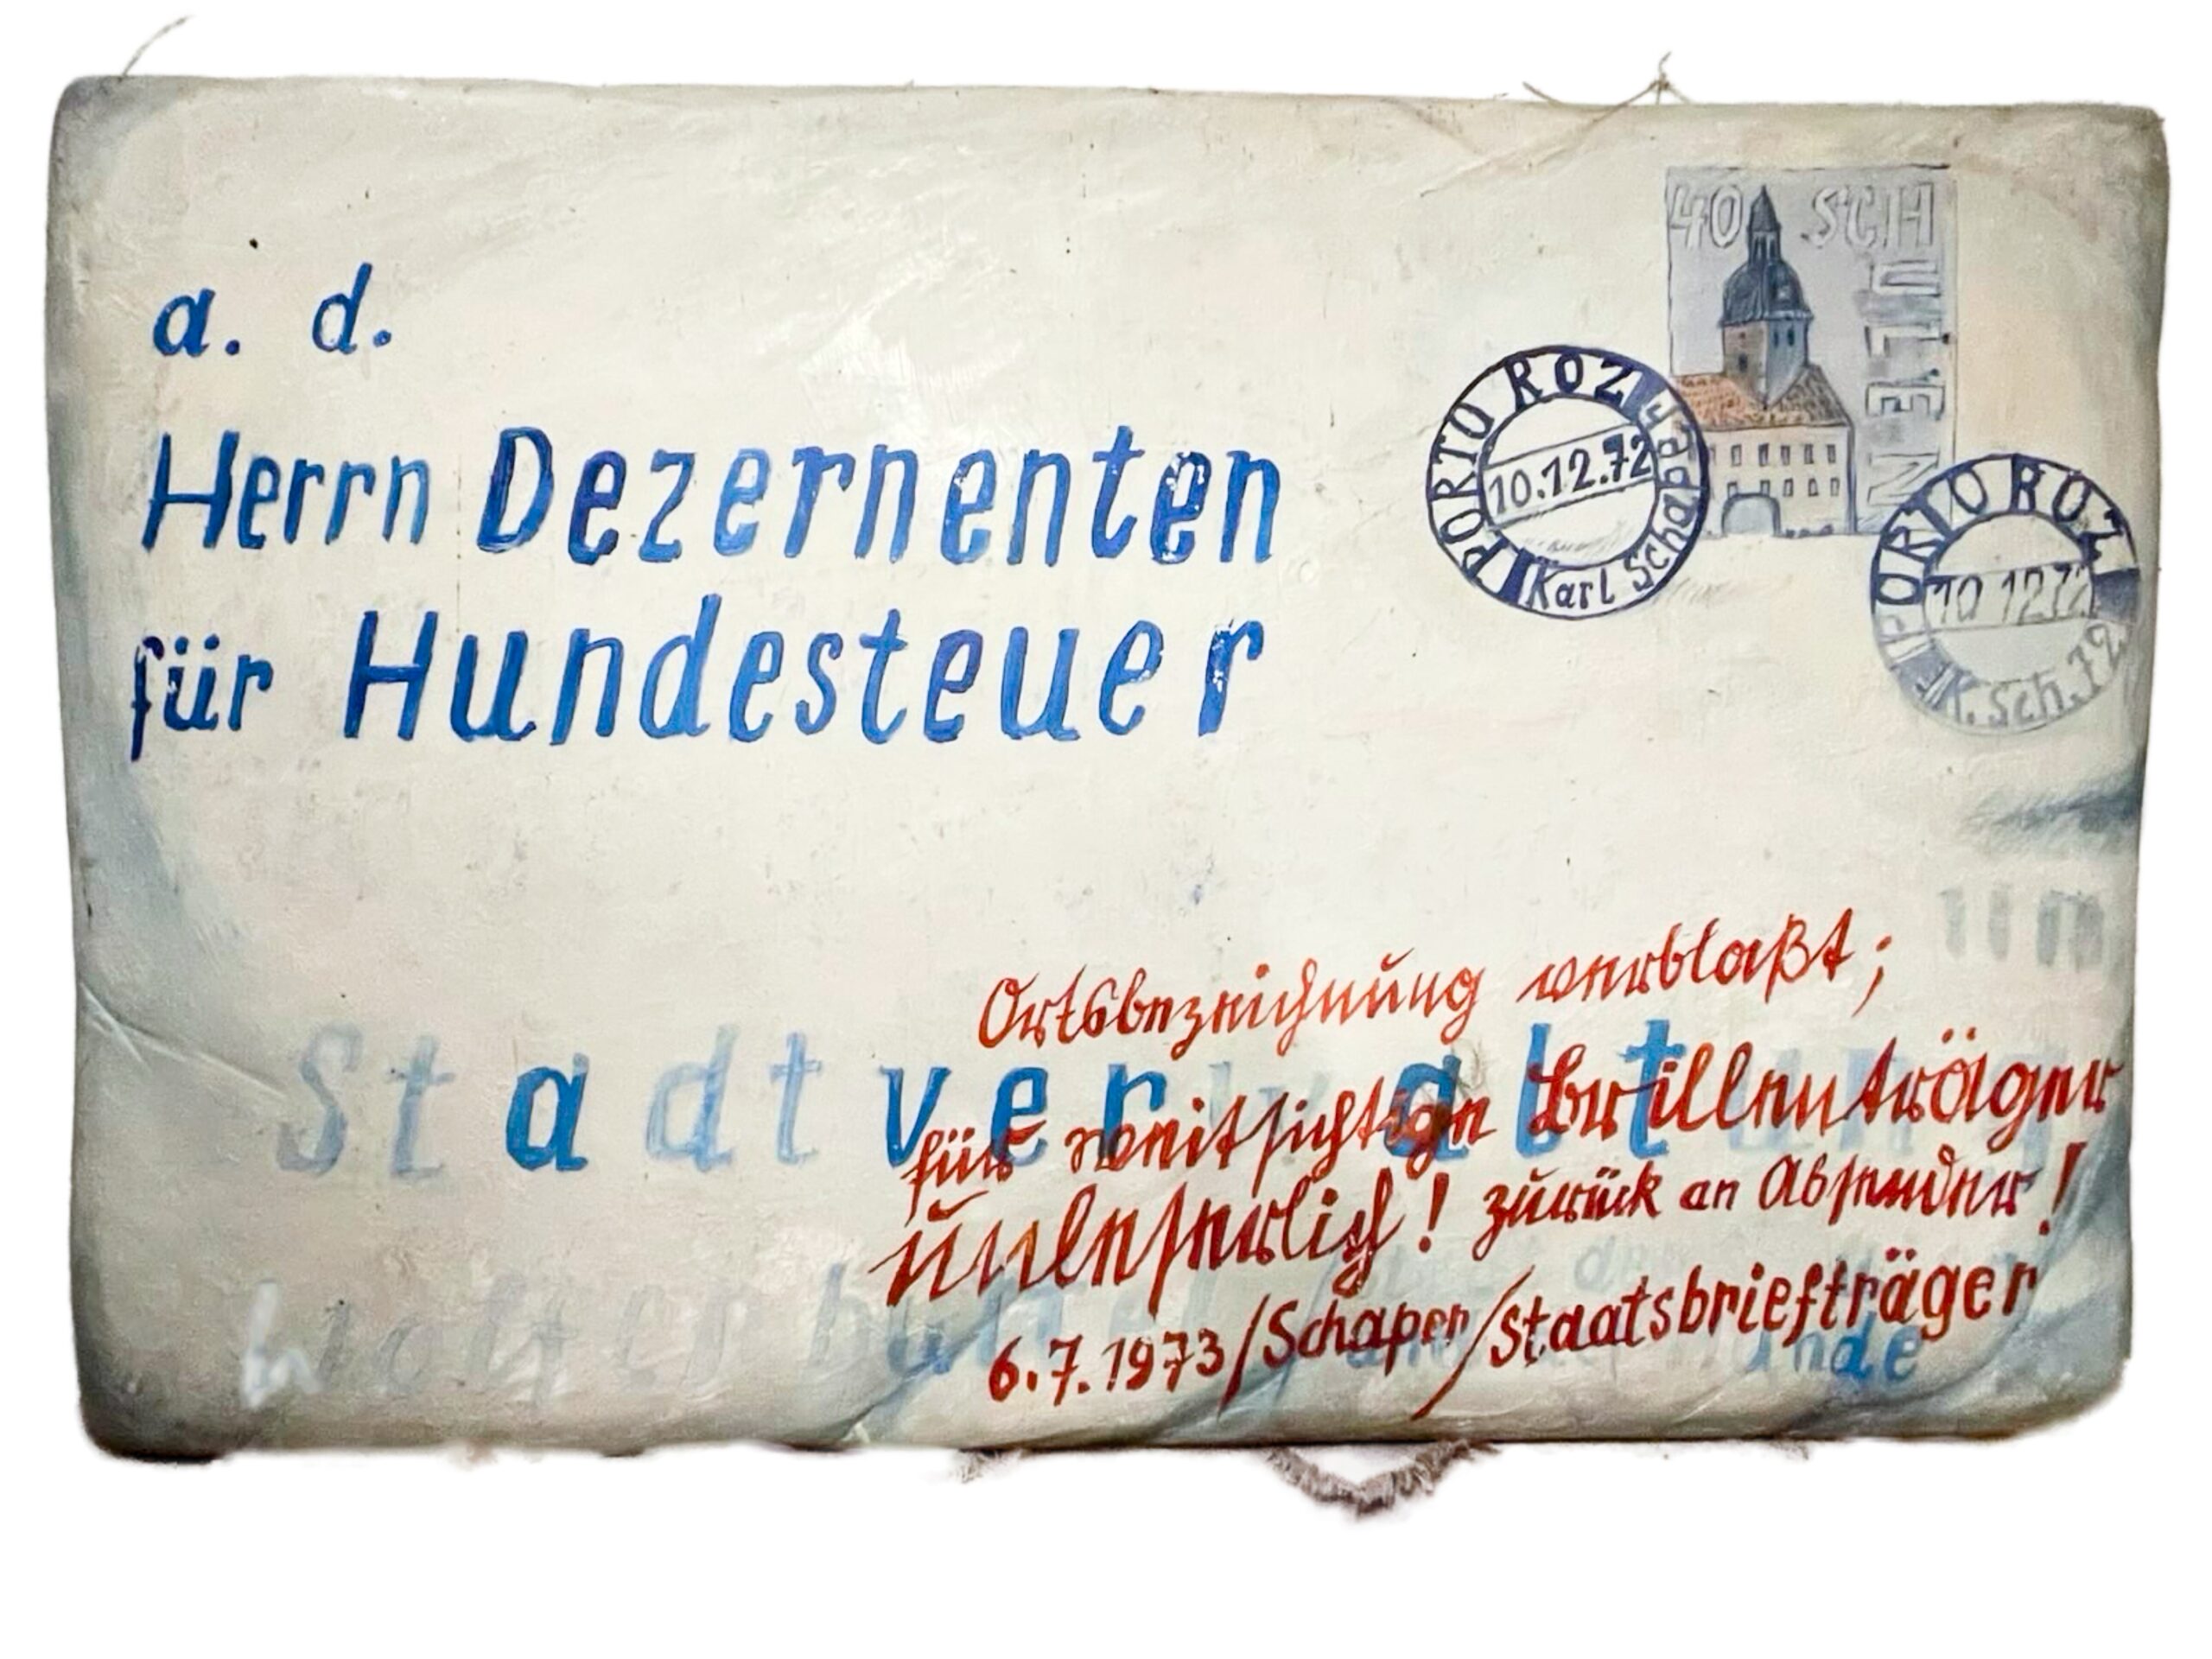 a. d.
Herrn Dezernenten
für Hundesteuer
40 SCH
PORTO ROZ
10.12.72
Karl Schaper
PORTO ROZ
10 12 72
K. Sch. 72
Ortsbezeichnung verblaßt;
Stadtverwaltung
für weitsichtige Brillenträger
unleserlich! zurück an Absender!
6.7.1973/Schaper/Staatsbriefträger